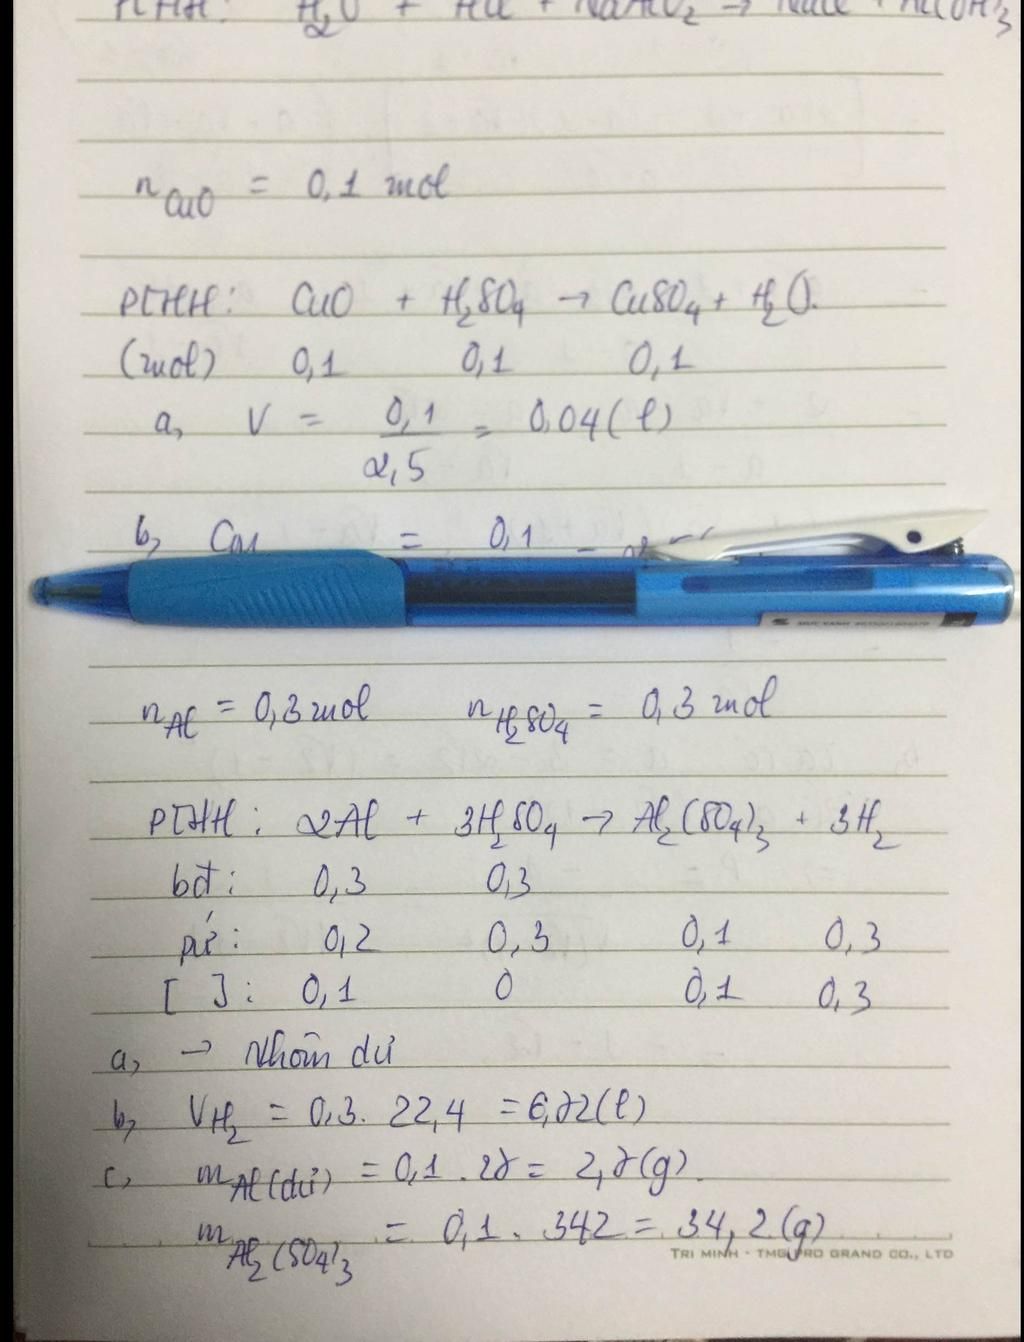 PTHH: H₂O + HCl + NaAlO₂ → NaCl + Al(OH)₃
n CuO = 0,1 mol
PTHH: CuO + H₂SO₄ → CuSO₄ + H₂O.
(mol) 0,1 0,1 0,1
a, V = 0,1/2,5 = 0,04 (l)
b, = 0,1
n Al = 0,3 mol n H₂SO₄ = 0,3 mol
PTHH: 2Al + 3H₂SO₄ → Al₂(SO₄)₃ + 3H₂
bđ: 0,3 0,3
pứ: 0,2 0,3 0,1 0,3
[ ]: 0,1 0 0,1 0,3
a, → Nhôm dư
b, V H₂ = 0,3. 22,4 = 6,72 (l)
c, m Al (dư) = 0,1 . 27 = 2,7 (g).
m Al₂(SO₄)₃ = 0,1. 342 = 34,2 (g)
TRI MINH - TMG PRO GRAND CO., LTD